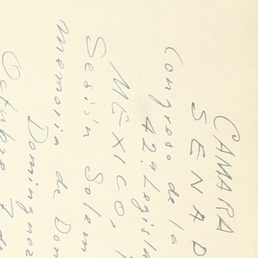 CAMARA
SENAD
Congreso de la
42ª Legisla
MEXICO,
Sesión Solem
memoria de Don
Dominguez
Octubre 7 de